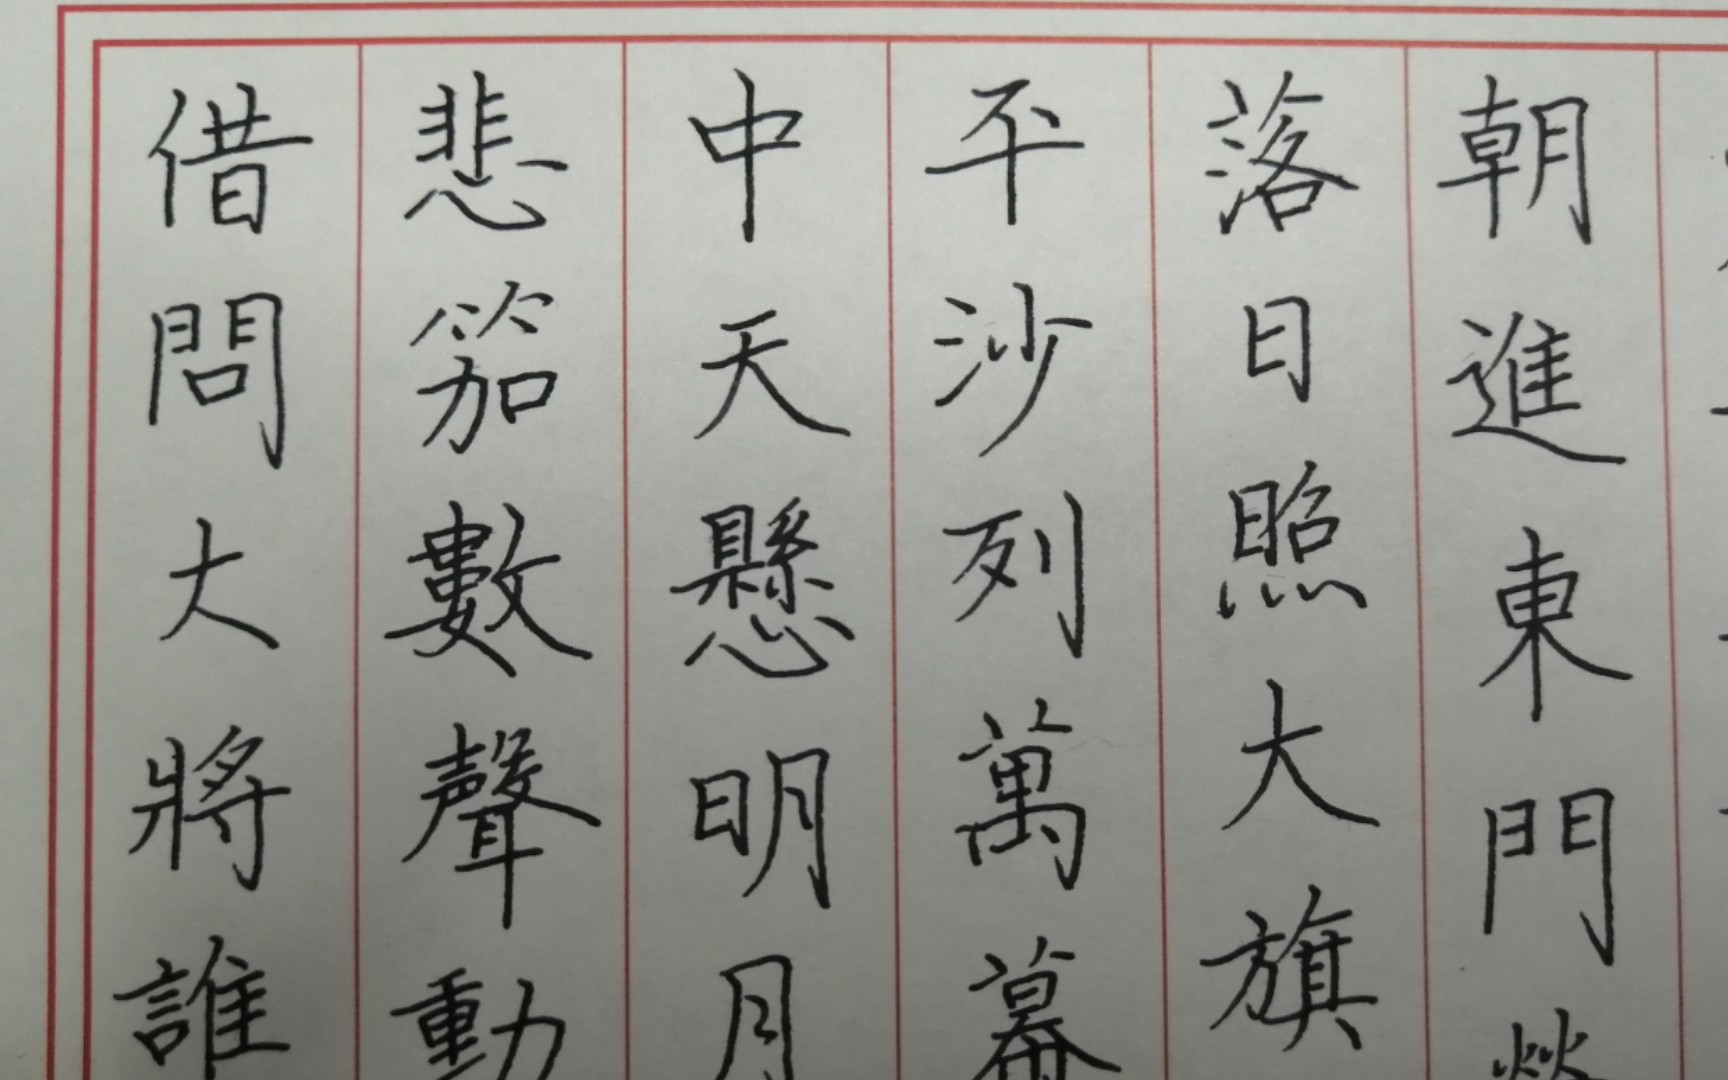 朝進東門
落日照大旗
平沙列萬幕
中天懸明月
悲笳數聲動
借問大將誰